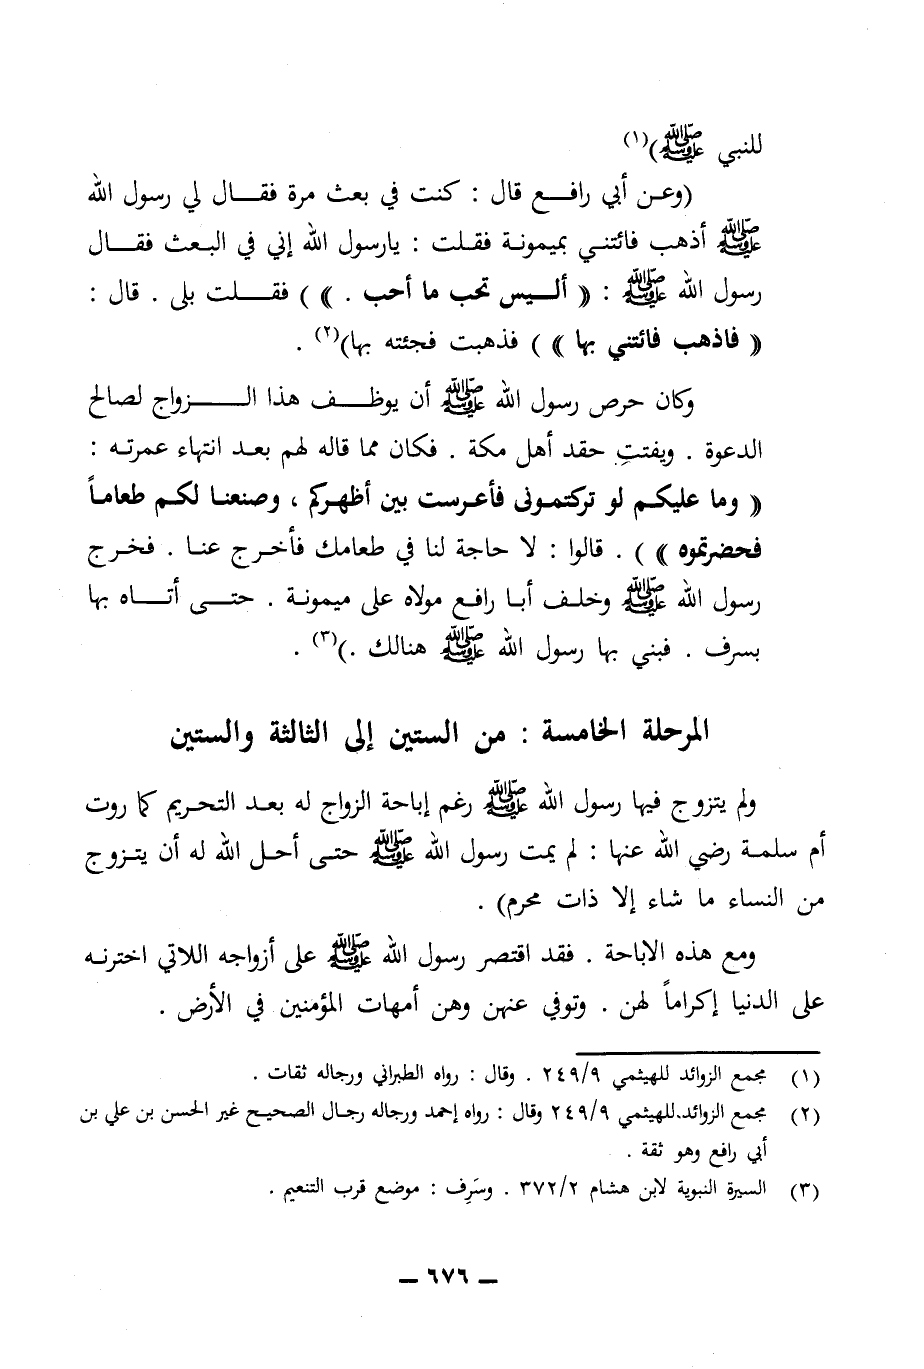 للنبي ﷺ)(١)
(وعن أبي رافع قال : كنت في بعث مرة فقال لي رسول الله
ﷺ أذهب فائتني بميمونة فقلت : يارسول الله إني في البعث فقال
رسول الله ﷺ : (( أليس تحب ما أحب . )) ) فقلت بلى . قال :
(( فاذهب فائتني بها )) ) فذهبت فجئته بها)(٢) .
وكان حرص رسول الله ﷺ أن يوظف هذا الزواج لصالح
الدعوة . ويفتتِ حقد أهل مكة . فكان مما قاله لهم بعد انتهاء عمرته :
(( وما عليكم لو تركتموني فأعرست بين أظهركم ، وصنعنا لكم طعاماً
فحضرتموه )) ) . قالوا : لا حاجة لنا في طعامك فأخرج عنا . فخرج
رسول الله ﷺ وخلف أبا رافع مولاه على ميمونة . حتى أتاه بها
بسرف . فبني بها رسول الله ﷺ هنالك .)(٣) .
المرحلة الخامسة : من الستين إلى الثالثة والستين
ولم يتزوج فيها رسول الله ﷺ رغم إباحة الزواج له بعد التحريم كما روت
أم سلمة رضي الله عنها : لم يمت رسول الله ﷺ حتى أحل الله له أن يتزوج
من النساء ما شاء إلا ذات محرم) .
ومع هذه الاباحة . فقد اقتصر رسول الله ﷺ على أزواجه اللاتي اخترنه
على الدنيا إكراماً لهن . وتوفي عنهن وهن أمهات المؤمنين في الأرض .
(١) مجمع الزوائد للهيثمي ٢٤٩/٩ . وقال : رواه الطبراني ورجاله ثقات .
(٢) مجمع الزوائد.للهيثمي ٢٤٩/٩ وقال : رواه إحمد ورجاله رجال الصحيح غير الحسن بن علي بن
أبي رافع وهو ثقة .
(٣) السيرة النبوية لابن هشام ٣٧٢/٢ . وسَرِف : موضع قرب التنعيم .
— ٦٧٦ —